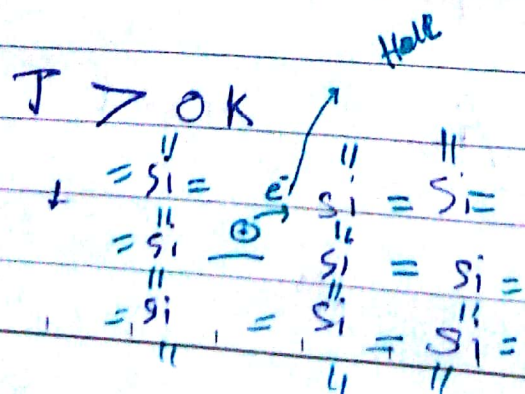 Hole
T > 0 K
= Si = e⁻ Si = Si =
= Si ⊕ Si = Si =
= Si = Si = Si =